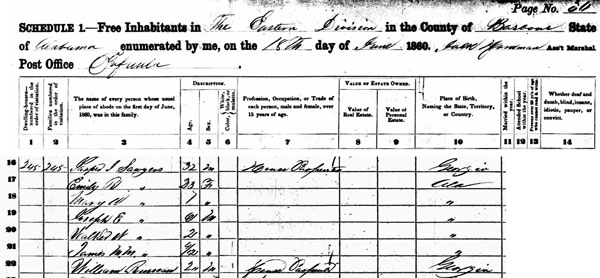 Page No. 60
SCHEDULE 1.—Free Inhabitants in The Eastern Division in the County of Barbour State
of Alabama enumerated by me, on the 18th day of June 1860. Ass't Marshal.
Post Office Eufaula
Dwelling-houses—numbered in the order of visitation.
Families numbered in the order of visitation.
The name of every person whose usual place of abode on the first day of June, 1860, was in this family.
DESCRIPTION.
Age.
Sex.
Color, White, black, or mulatto.
Profession, Occupation, or Trade of each person, male and female, over 15 years of age.
VALUE OF ESTATE OWNED.
Value of Real Estate.
Value of Personal Estate.
Place of Birth, Naming the State, Territory, or Country.
Married within the year.
Attended School within the year.
Whether deaf and dumb, blind, insane, idiotic, pauper, or convict.
1 2 3 4 5 6 7 8 9 10 11 12 13 14
16 245 245 Sanders 32 m House Carpenter Georgia
17 Emily " 23 F Ala
18 Mary " 7 "
19 Joseph E " m "
20 " 2 "
21 James " "
22 William m House Carpenter Georgia